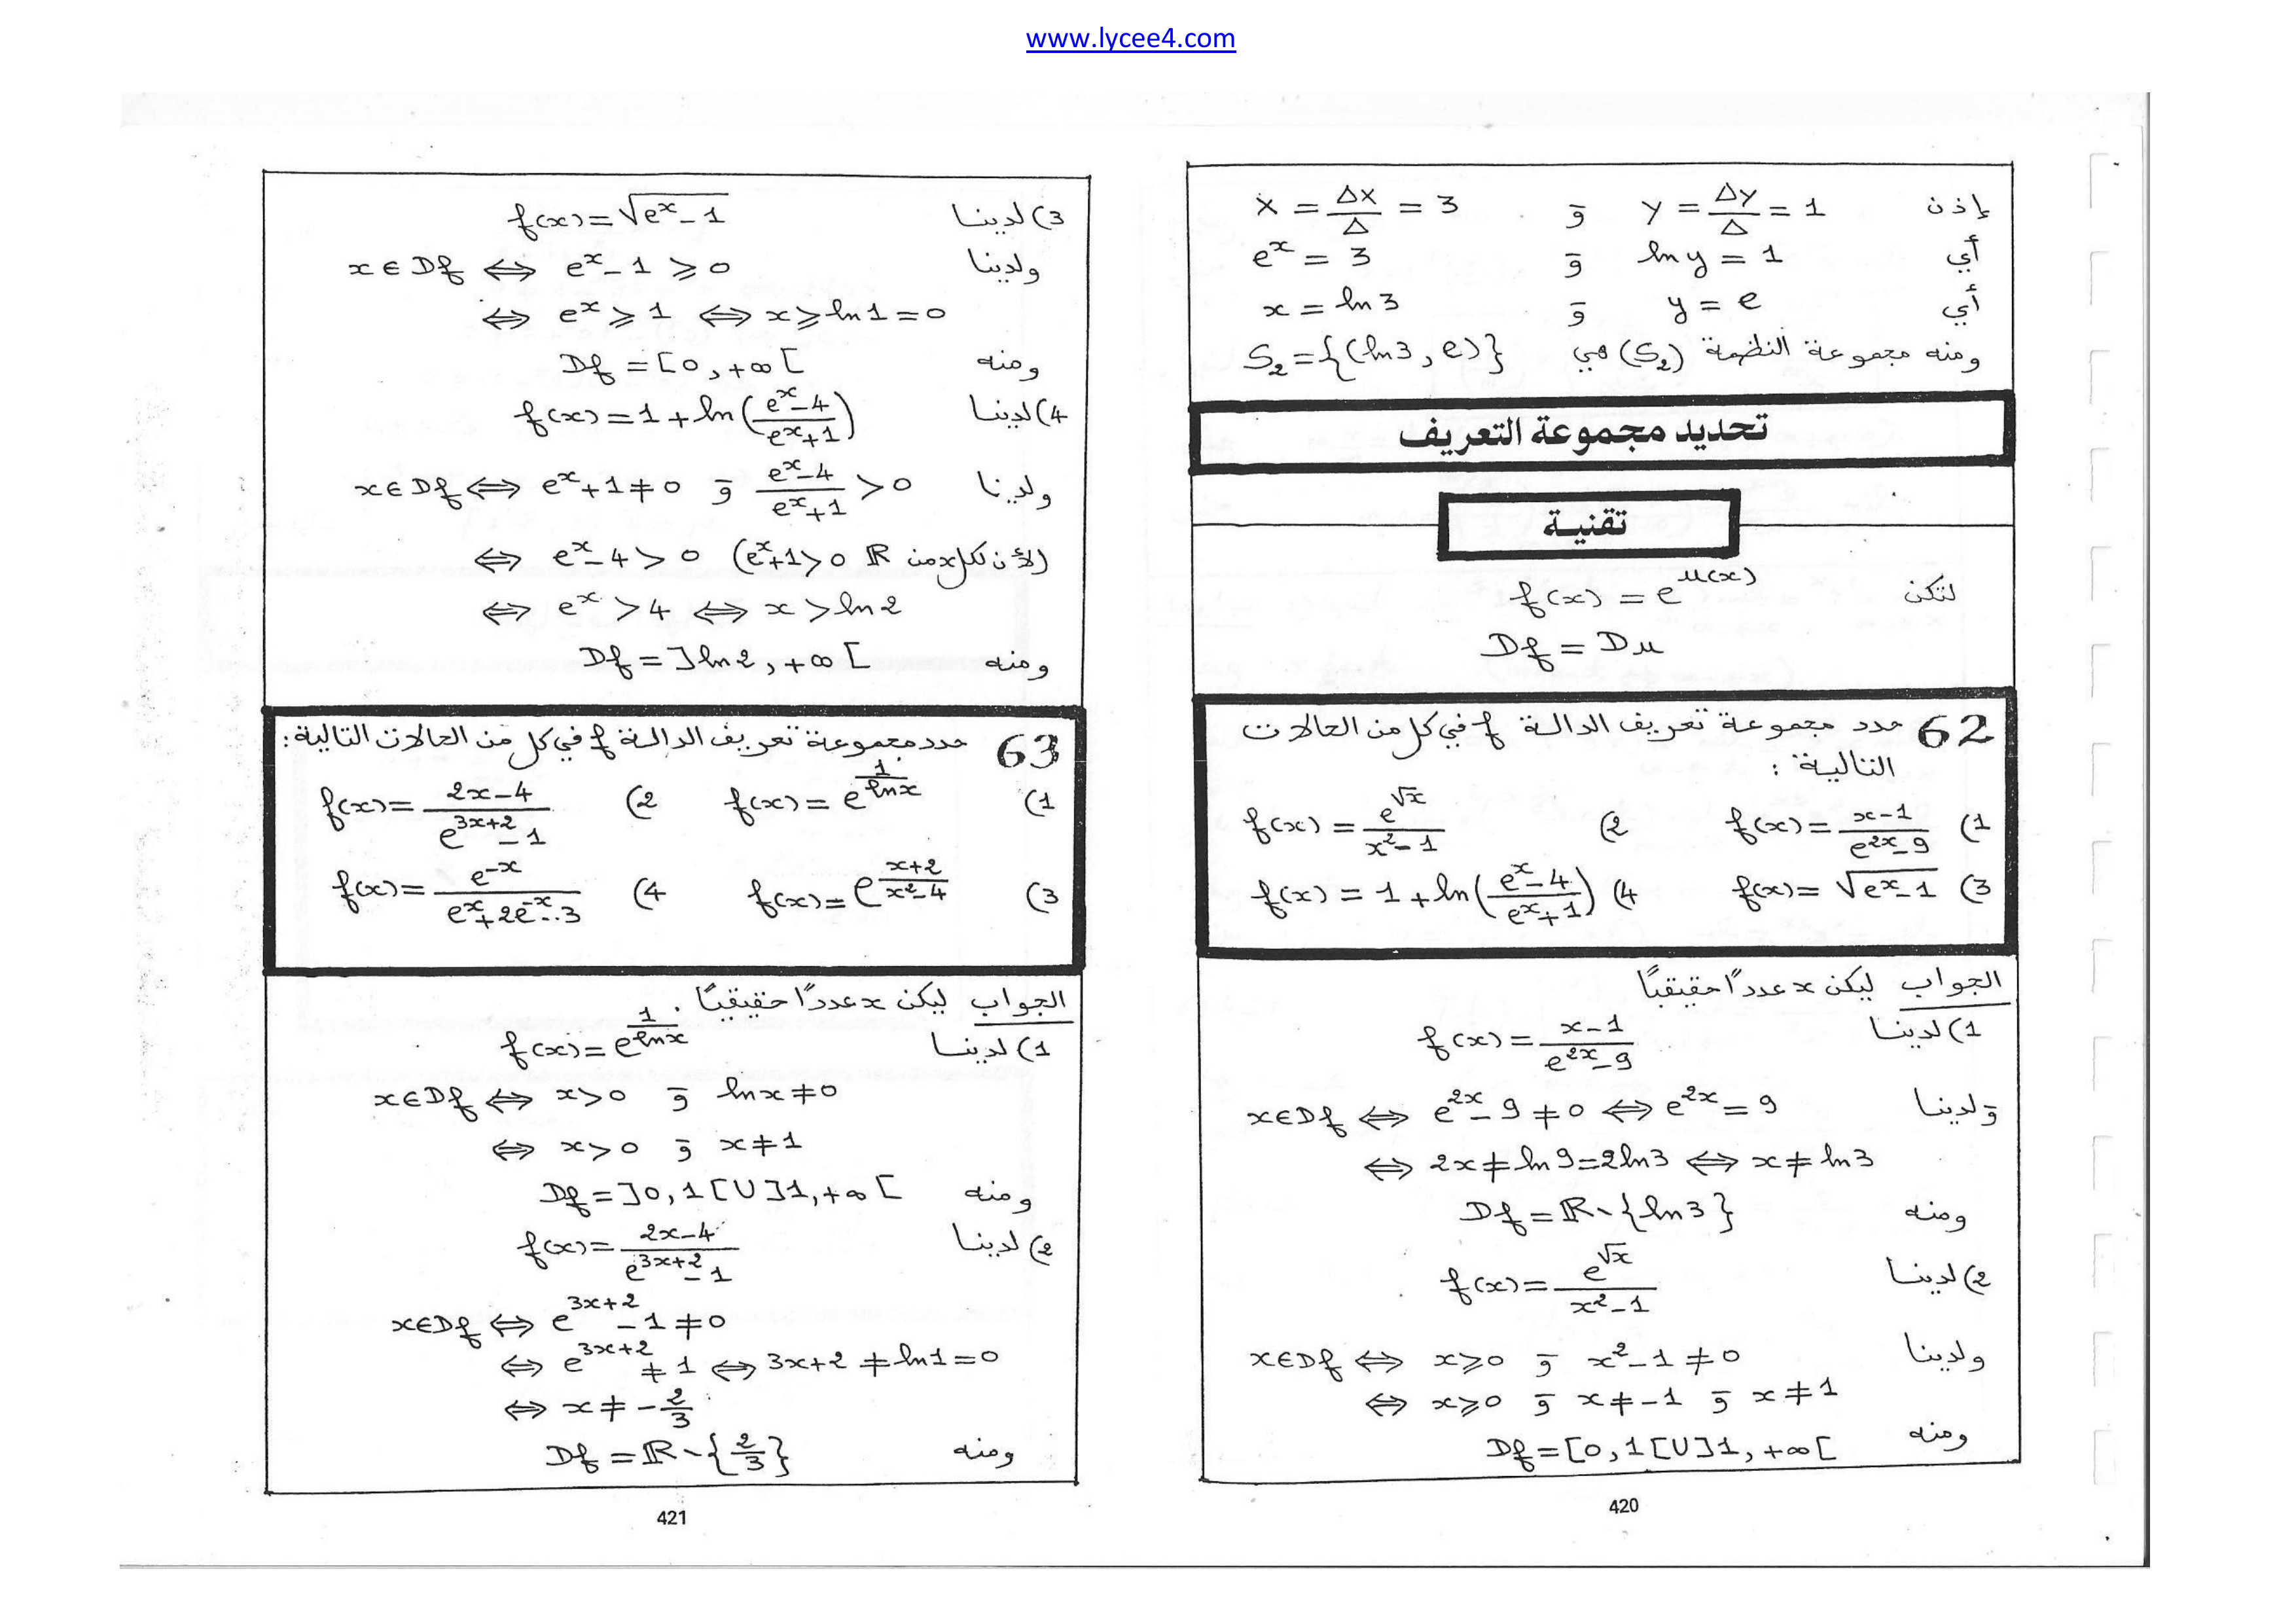 www.lycee4.com
إذن X = ΔX/Δ = 3 و Y = ΔY/Δ = 1
أي e^x = 3 و ln y = 1
أي x = ln 3 و y = e
ومنه مجموعة النظمة (S₂) هي S₂ = {(ln 3 , e)}
تحديد مجموعة التعريف
تقنية
لتكن f(x) = e^{u(x)}
Df = Du
62 حدد مجموعة تعريف الدالة f في كل من الحالات
التالية :
1) f(x) = (x-1)/(e^{2x}-9) 2) f(x) = e^{√x}/(x²-1)
3) f(x) = √(e^x-1) 4) f(x) = 1 + ln((e^x-4)/(e^x+1))
الجواب ليكن x عددًا حقيقيًا
1) لدينا f(x) = (x-1)/(e^{2x}-9)
ولدينا x ∈ Df ⇔ e^{2x} - 9 ≠ 0 ⇔ e^{2x} = 9
⇔ 2x ≠ ln 9 = 2 ln 3 ⇔ x ≠ ln 3
ومنه Df = ℝ \ {ln 3}
2) لدينا f(x) = e^{√x}/(x²-1)
ولدينا x ∈ Df ⇔ x ⩾ 0 و x² - 1 ≠ 0
⇔ x ⩾ 0 و x ≠ -1 و x ≠ 1
ومنه Df = [0 , 1[ U ]1 , +∞[
420
3) لدينا f(x) = √(e^x - 1)
ولدينا x ∈ Df ⇔ e^x - 1 ⩾ 0
⇔ e^x ⩾ 1 ⇔ x ⩾ ln 1 = 0
ومنه Df = [0 , +∞[
4) لدينا f(x) = 1 + ln((e^x-4)/(e^x+1))
ولدينا x ∈ Df ⇔ e^x + 1 ≠ 0 و (e^x-4)/(e^x+1) > 0
⇔ e^x - 4 > 0 (لأن لكل x من ℝ e^x+1 > 0)
⇔ e^x > 4 ⇔ x > ln 2
ومنه Df = ]ln 2 , +∞[
63 حدد مجموعة تعريف الدالة f في كل من الحالات التالية :
1) f(x) = e^{1/ln x} 2) f(x) = (2x-4)/(e^{3x+2}-1)
3) f(x) = e^{(x+2)/(x²-4)} 4) f(x) = e^{-x}/(e^x+2e^{-x}-3)
الجواب ليكن x عددًا حقيقيًا .
1) لدينا f(x) = e^{1/ln x}
x ∈ Df ⇔ x > 0 و ln x ≠ 0
⇔ x > 0 و x ≠ 1
ومنه Df = ]0 , 1[ U ]1 , +∞[
2) لدينا f(x) = (2x-4)/(e^{3x+2}-1)
x ∈ Df ⇔ e^{3x+2} - 1 ≠ 0
⇔ e^{3x+2} ≠ 1 ⇔ 3x+2 ≠ ln 1 = 0
⇔ x ≠ -2/3
ومنه Df = ℝ \ {2/3}
421